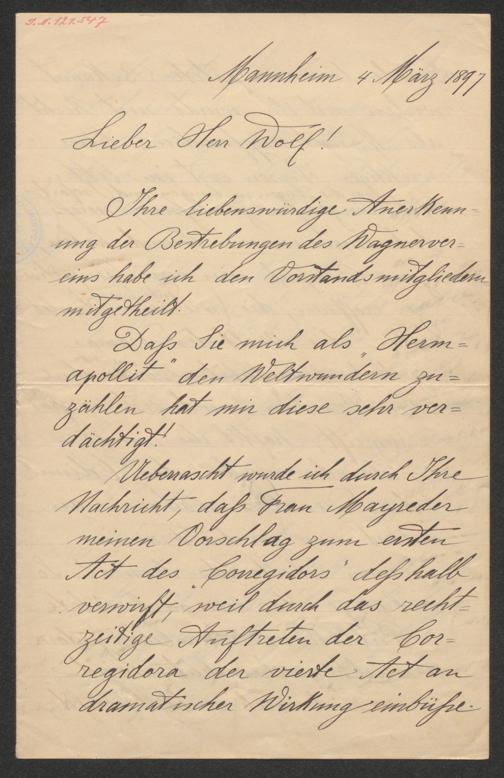 I.N. 121.547
Mannheim 4 März 1897
Lieber Herr Wolf!
Ihre liebenswürdige Anerkenn=
ung der Bestrebungen des Wagnerver=
eins habe ich den Vorstandsmitgliedern
mitgetheilt.
Daß Sie mich als „Herm=
apollit" den Weltwundern zu=
zählen hat mir diese sehr ver=
dächtigt!
Ueberrascht wurde ich durch Ihre
Nachricht, daß Frau Mayreder
meinen Vorschlag zum ersten
Act des „Corregidors" deßhalb
verwirft, weil durch das recht=
zeitige Auftreten der Cor=
regidora der vierte Act an
dramatischer Wirkung einbüße.